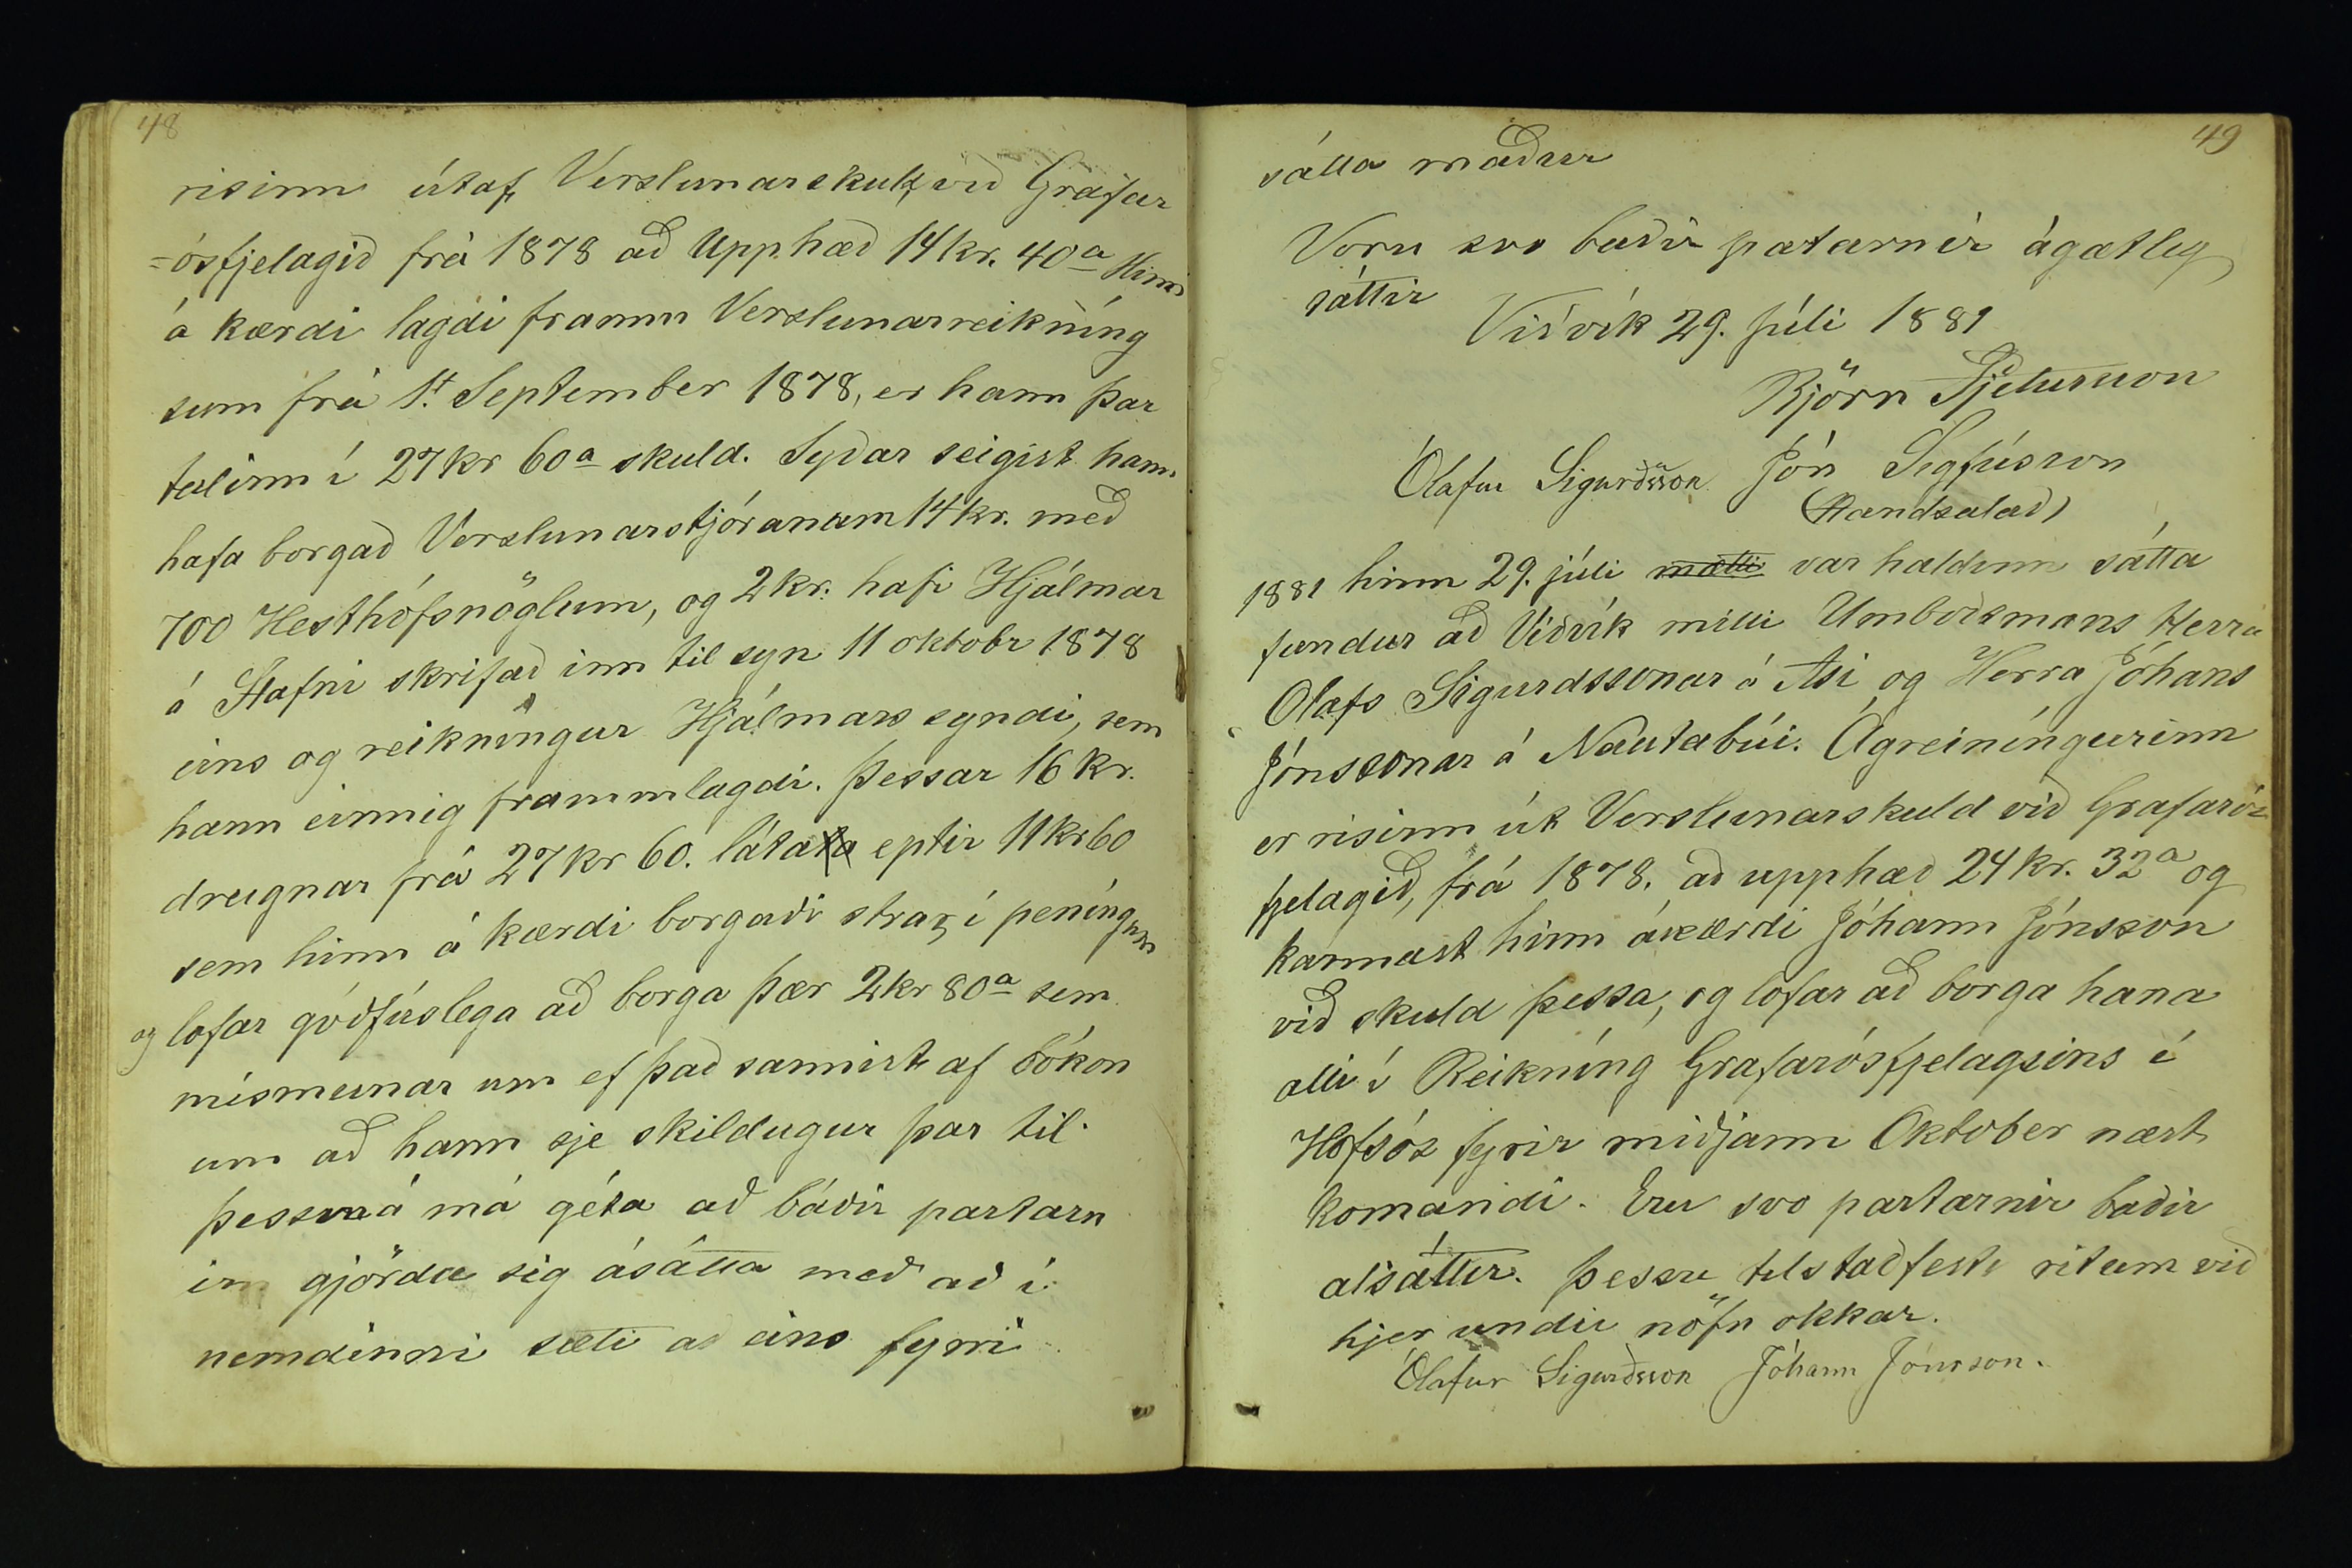 48
risinn útaf Verslunarskuld, við Grafar
=ósfjelagið frá 1878 að Upphæð 14 kr. 40a Hinn
á kærdi lagdi framm Verslunarreikníng
sum frá 1t September 1878, er hann þar
talinn í 27 kr 60a skuld. Syðar seigist hann
hafa borgað Verslunarstjóranum 14 kr. með
700 Hesthófsnöglum, og 2 kr. hafi Hjálmar
á Stafni skrifað inn til syn 11 oktobr 1878
eins og reikníngur Hjálmars syndi, sem
hann einnig frammlagdi. Þessar 16 kr.
dregnar frá 27 kr 60. láta eptir 11 kr 60
sem hinn á kærdi borgaði strax í peníngum
og lofar góðfúslega að borga þær 2 kr 80a sem
mismunar um ef það sannist af bókon
um að hann sje skildugur þar til.
þess má géta að báðir partarn
irn gjördu sig ásátta með að í
nemdinni sæti að eins fyrri
49
sátta maður
Voru svo baðir patarnir ágætleg
sáttir
Viðvík 29. júli 1881
Björn Pjetursson
Ólafur Sigurðsson Jón Sigfússon
(Handsalað)
1881 hinn 29. júli milli var haldinn sátta
fundur að Viðvík milli Umboðsmans Herra
Olafs Sigurdssonar á Ási og Herra Jóhans
Jónssonar á Nautabúi. Ágreiníngurinn
er risinn út Verslunarskuld við Grafarós
fjelagið, frá 1878. að upphæð 24 kr. 32a og
kannast hinn ákærdi Jóhann Jónsson
við skuld þessa, og lofar að borga hana
alli í Reikníng Grafarósfjelagsins í
Hofsós fyrir miðjann Oktober næst
komandi. Eru svo partarnir baðir
alsáttir. Þessu til staðfestu ritum við
hjer undir nöfn okkar.
Ólafur Sigurðsson Jóhann Jónsson.